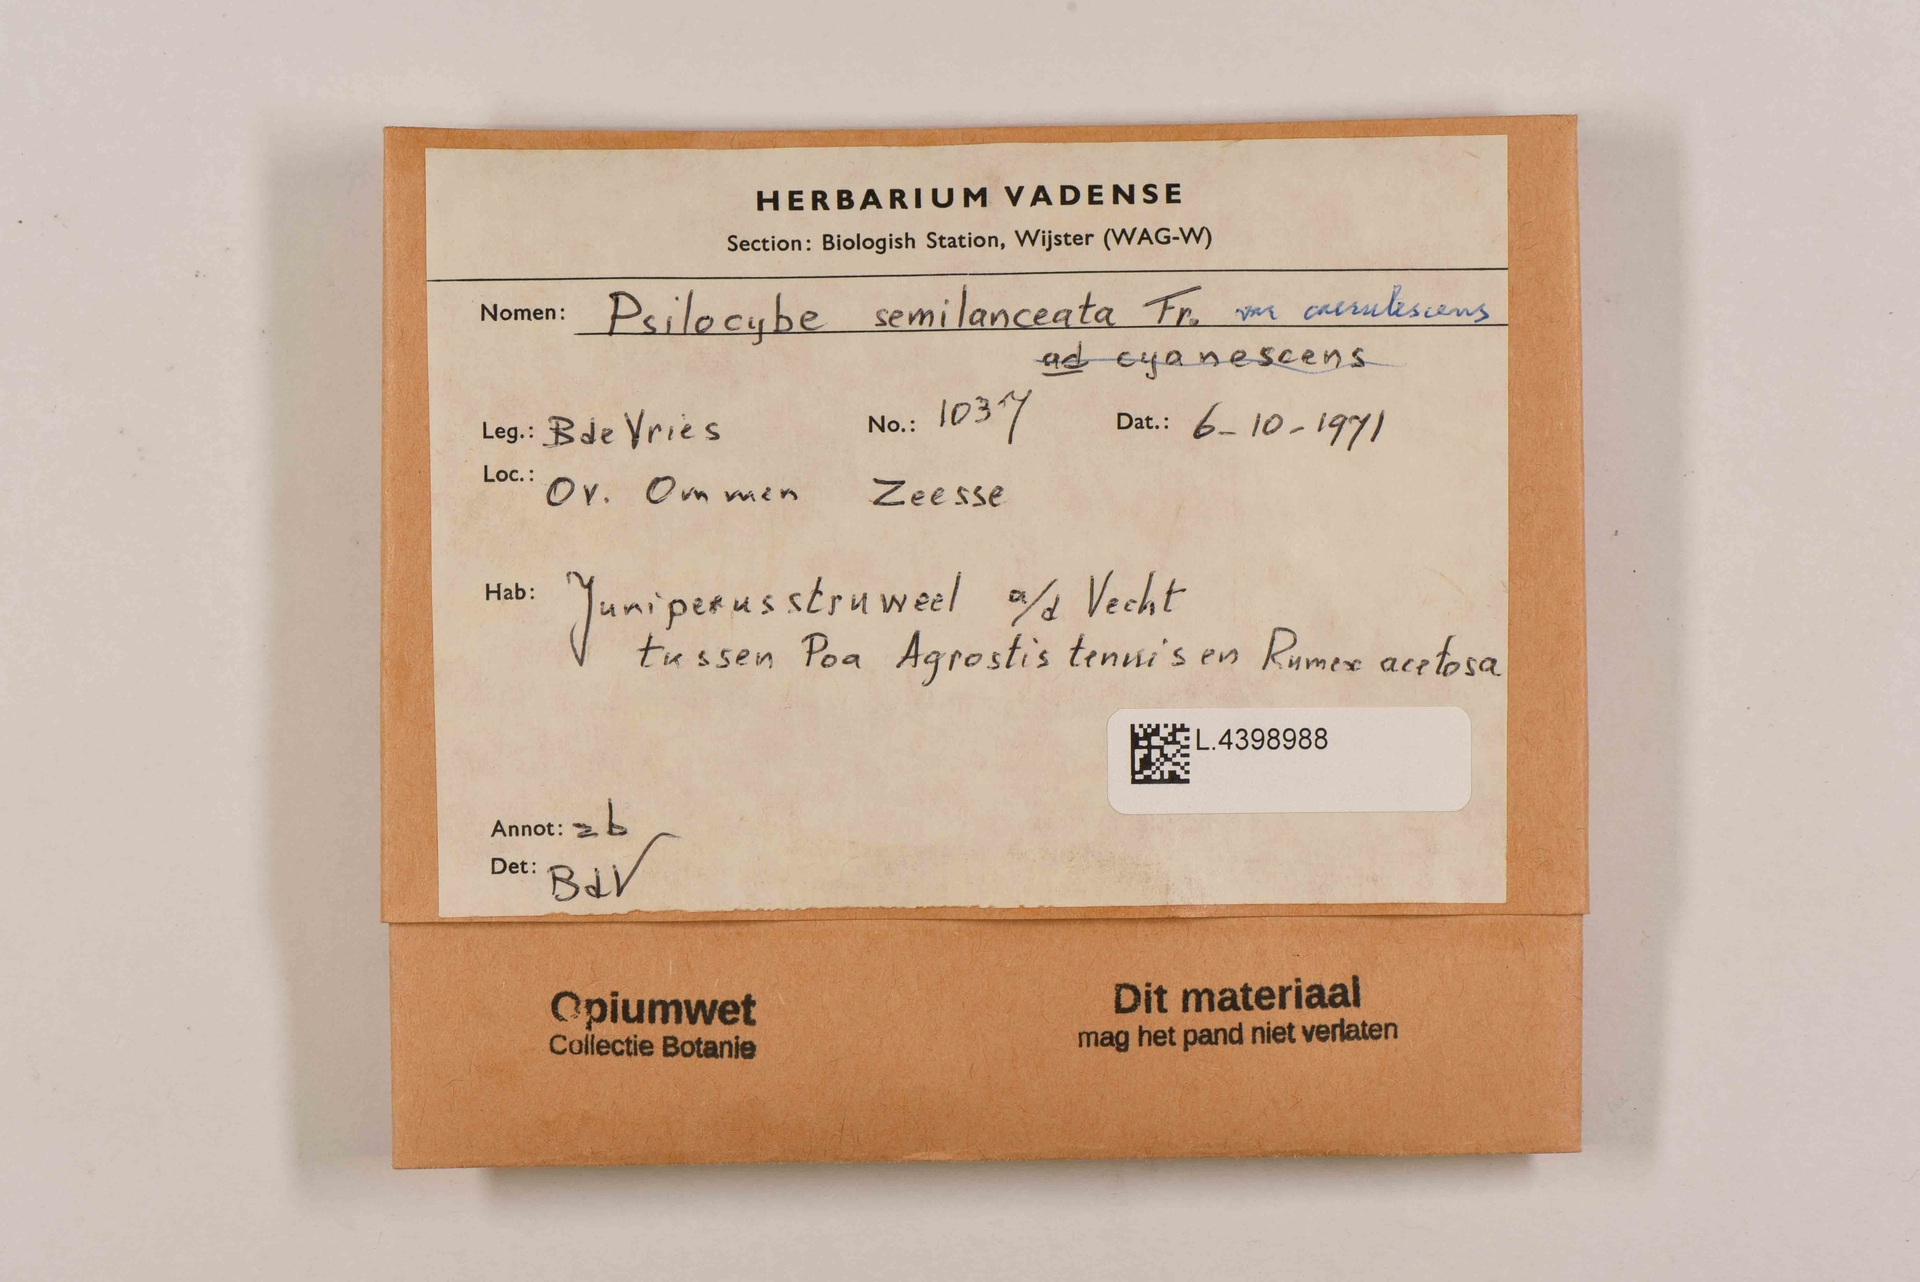 HERBARIUM VADENSE
Section: Biologish Station, Wijster (WAG-W)
Nomen: Psilocybe semilanceata Fr. var caerulescens
ad cyanescens
Leg.: B de Vries No.: 1037 Dat.: 6-10-1971
Loc.: Ov. Ommen Zeesse
Hab: Juniperusstruweel a/d Vecht
tussen Poa Agrostis tenuis en Rumex acetosa
L.4398988
Annot: zb
Det: BdV
Opiumwet
Collectie Botanie
Dit materiaal
mag het pand niet verlaten